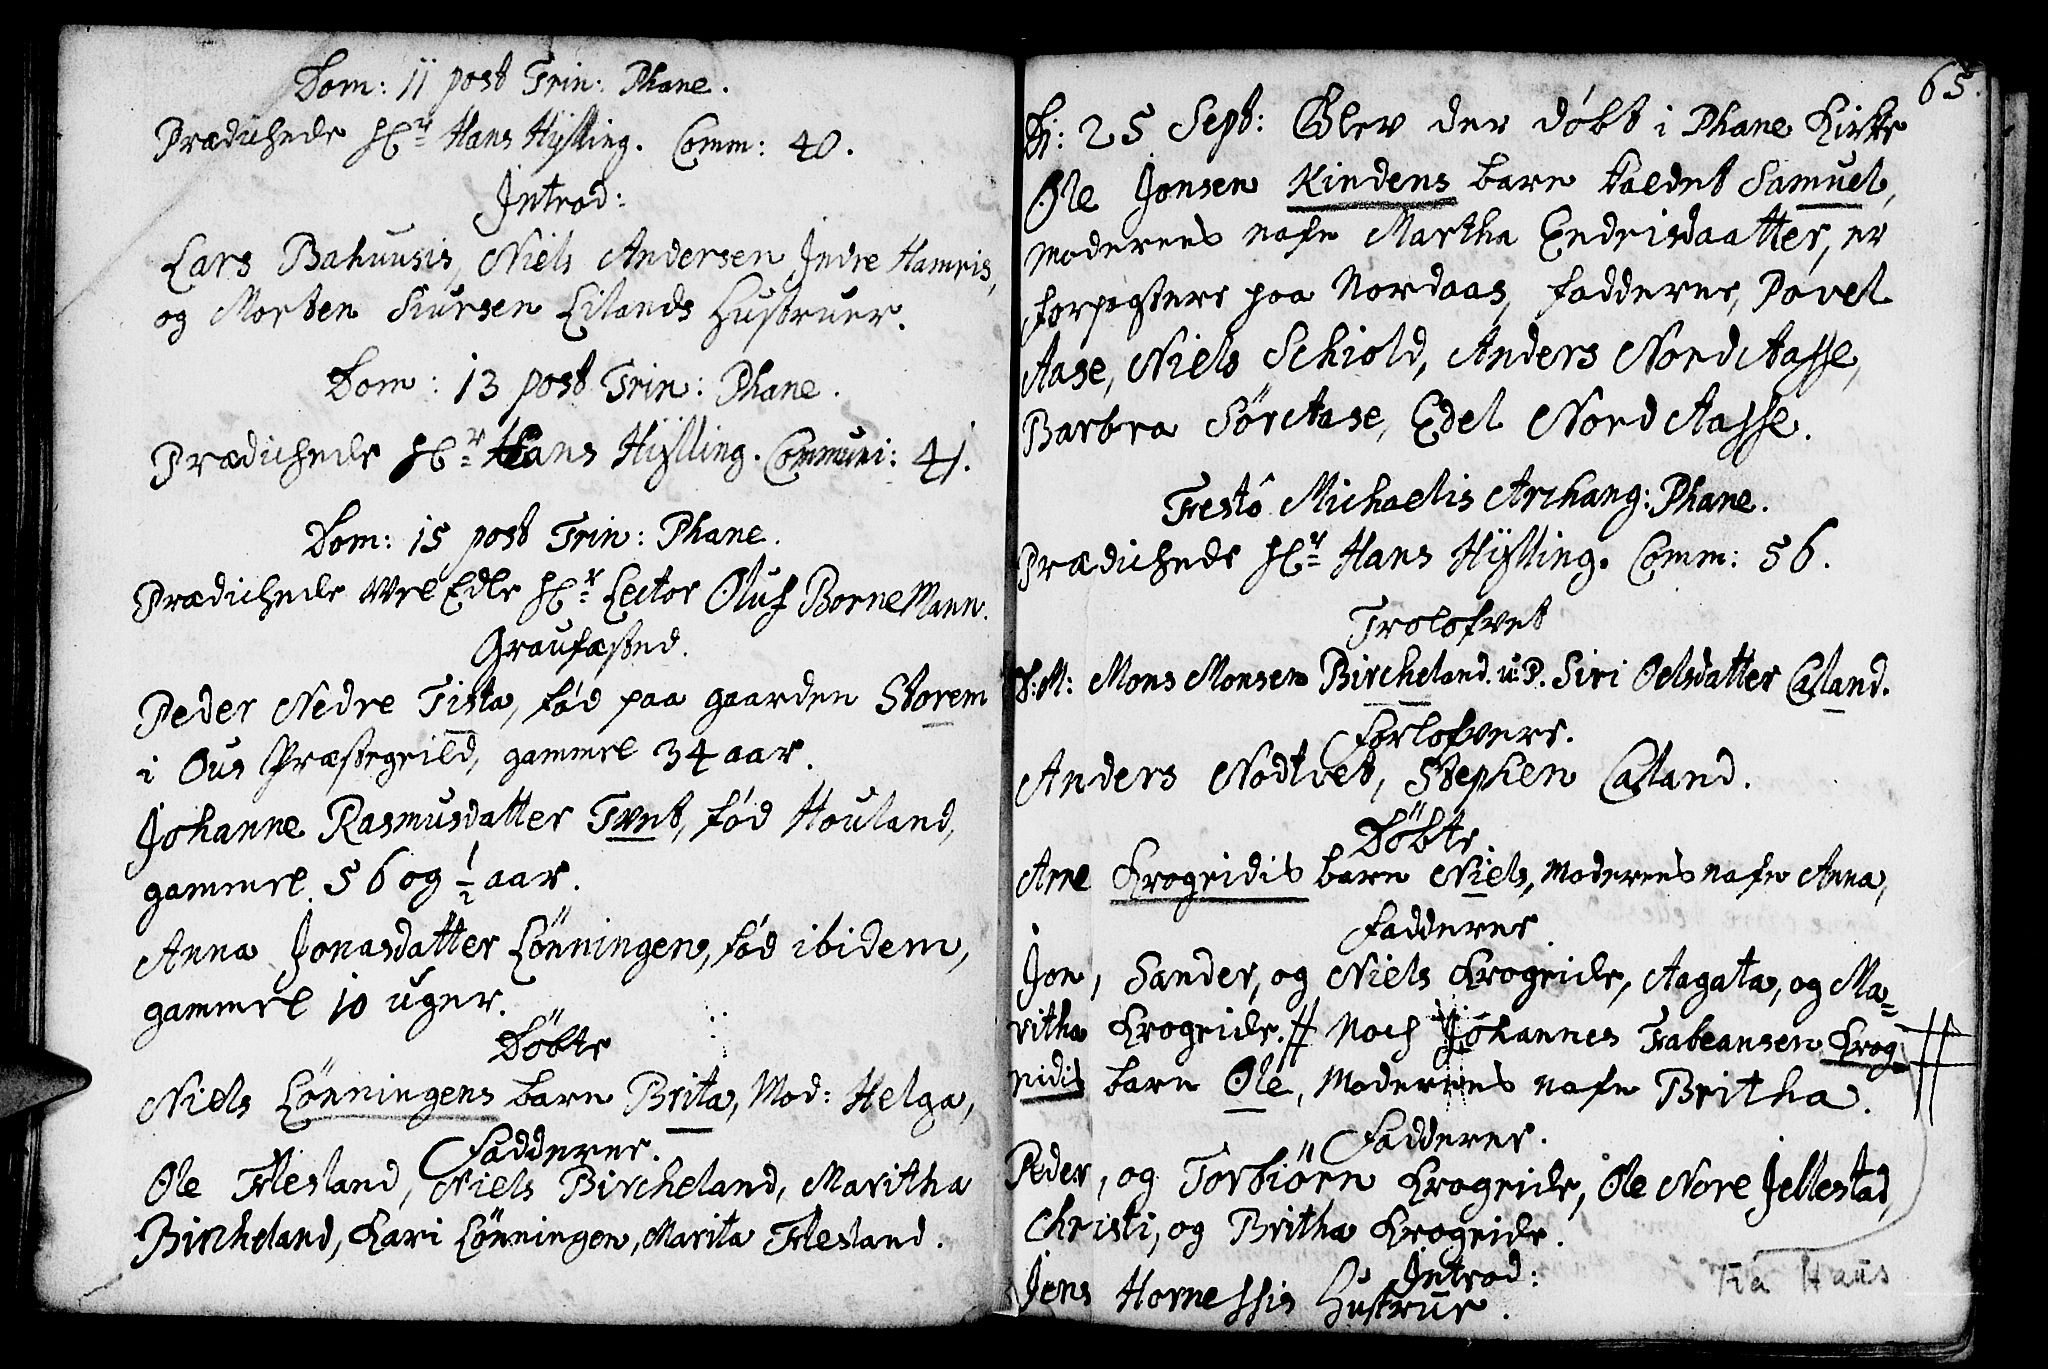 Dom: 11 post Trin: Phane.
Prædichede Hr Hans Hÿlling. Comm: 40.
Introd:
Lars Bahuusis, Niels Andersen Indre Hamris,
og Morten Siursen Lilands Hustruer.
Dom: 13 post Trin: Phane.
Prædichede Hr Hans Hÿlling. Communi: 41.
Dom: 15 post Trin: Phane.
Prædichede Vel Edle Hr Lector Oluf BorneMann.
Graufæsted.
Peder Nedre Tista, fød paa gaarden Storem
i Ous Præstegield, gammel 34 aar.
Johanne Rasmusdatter Tvet, fød Houland,
gammel 56 og 1/2 aar.
Anna Jonasdatter Lönningen, fød ibidem,
gammel 10 uger.
Döbte
Niels Lönningens barn Brita, Mod: Helga,
Fadderne.
Ole Flesland, Niels Bircheland, Maritha
Bircheland, Kari Lönningen, Marita Flesland.
65.
D: 25 Sept: Blev der døbt i Phane Kirke
Ole Jonsen Kindens barn kaldet Samuel,
moderens nafn Martha Endrisdaatter, er
forpagtere paa Nordaas, fadderne, Povel
Aase, Niels Schiold, Anders NordAasse,
Barbra SørAase, Edel Nord Aasse.
Festô Michaelis Archang: Phane.
Prædichede Hr Hans Hÿlling. Comm: 56.
Trolofvet
Mons Monsen Bircheland. u: P. Siri Oelsdatter Casland.
Forlofvere.
Anders Nödtvet, Stephen Casland.
Döbte.
Arne Krogeidis barn Niels, Moderens nafn Anna,
Fadderne.
Jon, Sander, og Niels Krogeide, Aagata, og Ma=
ritha Krogeide. # Noch Johannes Fabeansen Krog #
eidis barn Ole, Moderens nafn Britha.
Fadderne.
Peder, og Torbiörn Krogeide, Ole Nore Jellestad,
Christi, og Britha Krogeide.
Introd:
Jens Hornessis Hustrue.
Fra Haus